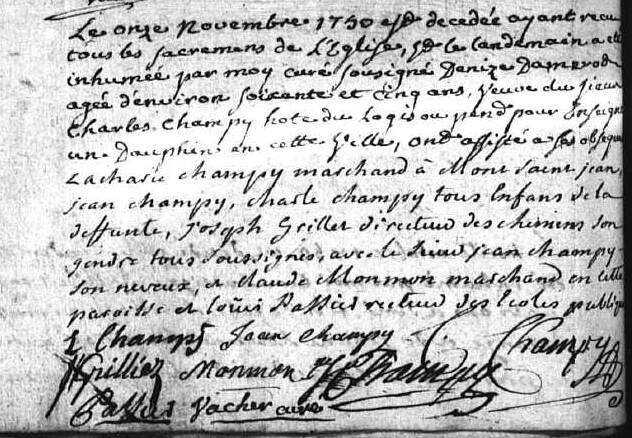 Le onze Novembre 1730 est decedée ayant recu
tous les sacremens de L'Eglise, et le landemain a eté
inhumée par moy curé soussigné Denize Damerod
agée d'environ soixante et Cinq ans, veuve du sieur
Charles Champy hote du Logis ou pend pour Enseigne
un Dauphin en cette Ville, ont assisté a ses obseques
Lacharie champy marchand à Mont saint jean,
jean champy, charle champy tous Enfans de la
deffunte, Joseph Grillet directeur des chemins son
gendre tous soussignes, avec le sieur jean champy
son neveux, et claude Monmon marchand en cette
paroisse et Loüis Passier recteur des Ecoles publiques
Champy Jean Champy Champy
Grillier Monmon Champy
Vacher curé